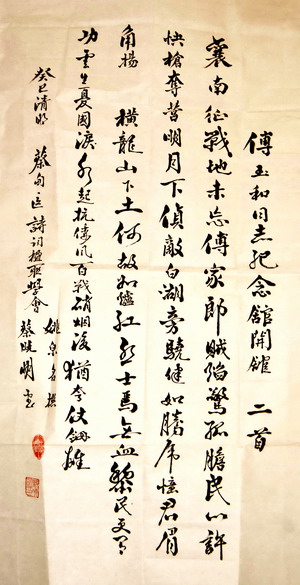 傅玉和同志纪念館開館 二首
襄南征戰地未忘傅家郎賊陷驚孤膽民心許
快槍奪營明月下偵敵白湖旁驍健如騰虎憶君眉
角揚 橫龍山下土何故如爐紅烈士焉無血黎民更有
功雲生憂國淚水起抗倭風百戰硝烟後猶夸仗劍雄
癸巳清明 蔡甸區詩词楹聯學會
姚泉名撰
蔡晓明书